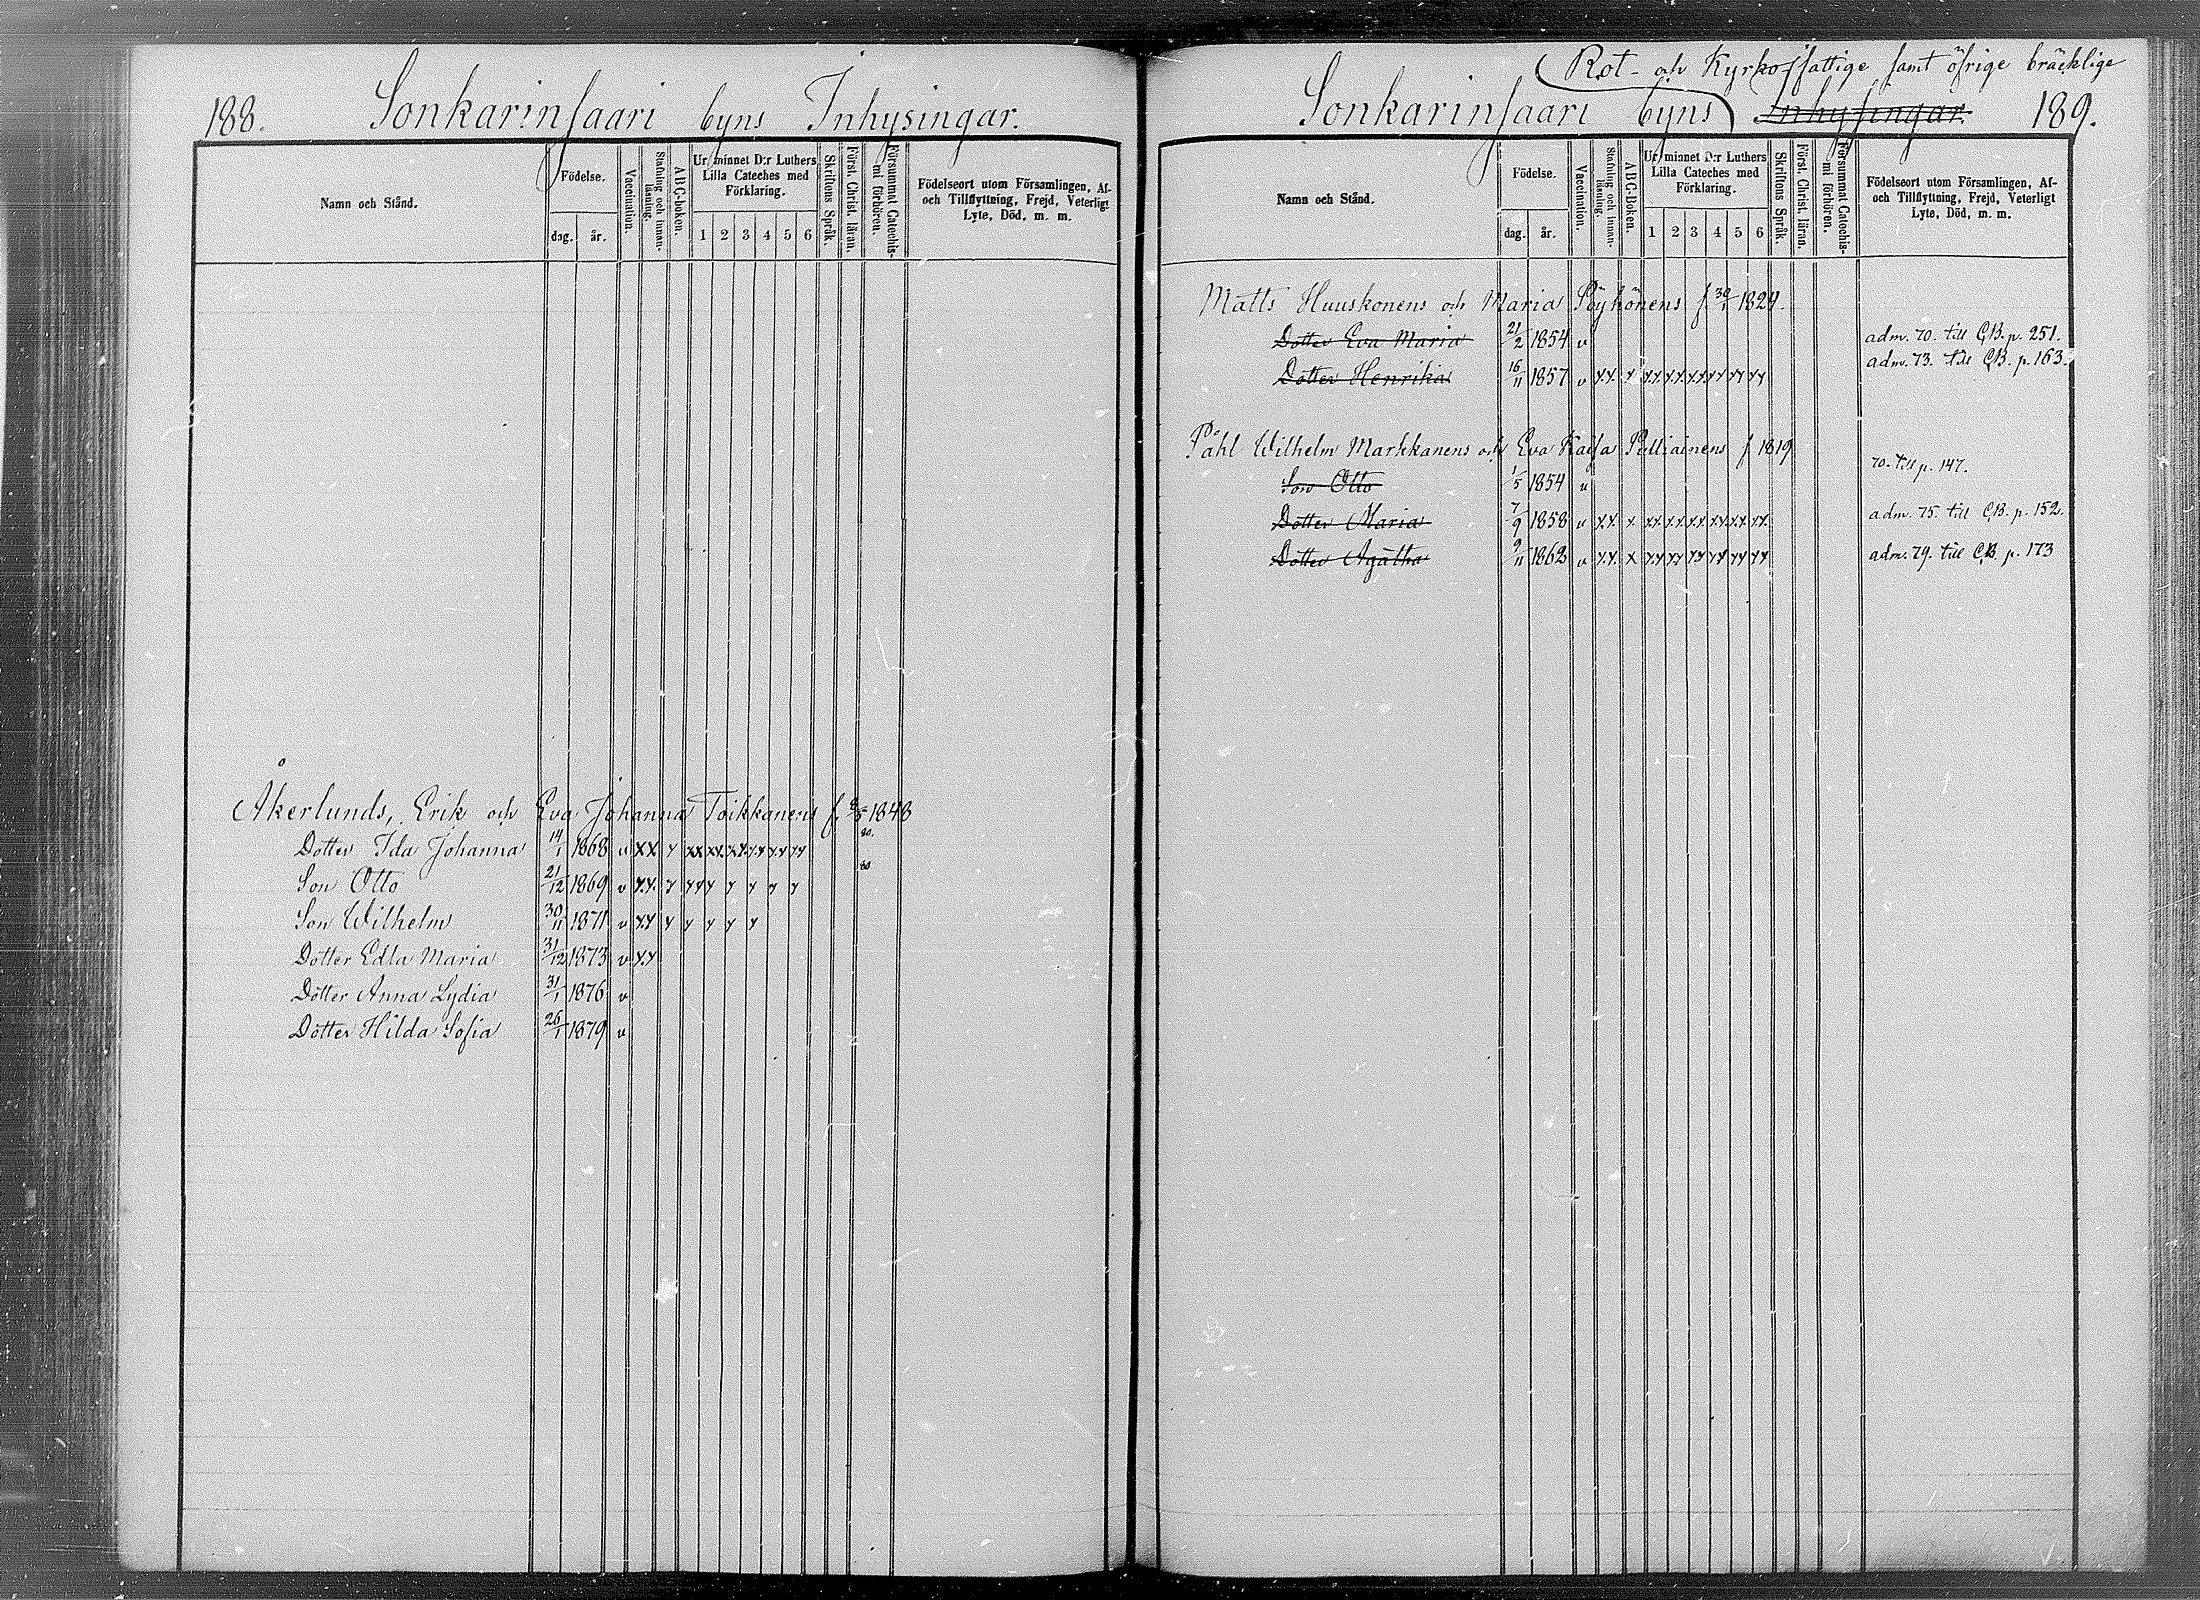 188. Sonkarinsaari byns Inhysingar.
Namn och Stånd.
Födelse.
dag. år.
Vaccination.
Stafning och innan-läsning.
ABC-boken.
Ur minnet D:r Luthers
Lilla Cateches med
Förklaring.
1 2 3 4 5 6
Skriftens Språk.
Först. Christ. läran.
Försummat Catechis-mi förhören.
Födelseort utom Församlingen, Af-
och Tillflyttning, Frejd, Veterligt
Lyte, Död, m. m.
Åkerlunds, Erik och Eva Johanna Toikkanens f. 1848
Dotter Ida Johanna 14/1 1868 v xx x xx xx xx xx xx xx 80.
Son Otto 21/12 1869 v xx x xx x x x x x 80
Son Wilhelm 30/11 1871 v xx x x x x x
Dotter Edla Maria 31/12 1873 v xx
Dotter Anna Lydia 31/1 1876 v
Dotter Hilda Sofia 26/1 1879 v
Rot- och Kyrkofattige samt öfrige bräcklige
Sonkarinsaari byns Inhysingar. 189.
Namn och Stånd.
Födelse.
dag. år.
Vaccination.
Stafning och innan-läsning.
ABC-Boken.
Ur minnet D:r Luthers
Lilla Cateches med
Förklaring.
1 2 3 4 5 6
Skriftens Språk.
Först. Christ. läran.
Försummat Catechis-mi förhören.
Födelseort utom Församlingen, Af-
och Tillflyttning, Frejd, Veterligt
Lyte, Död, m. m.
Matts Huuskonens och Maria Pöyhönens f 30/1 1824.
Dotter Eva Maria 21/2 1854 v adm. 70. till C.B. p. 251.
Dotter Henrika 16/11 1857 v xx x xx xx xx xx xx xx adm. 73. till C.B. p. 163.
Påhl Wilhelm Markkanens och Eva Kaisa Pulliainens f 1819
Son Otto 1/5 1854 v 70. till p. 147.
Dotter Maria 7/9 1858 v xx x xx xx xx xx xx xx adm. 75. till C.B. p. 152.
Dotter Agatha 9/11 1863 v xx x xx xx xx xx xx xx adm. 79. till C.B. p. 173